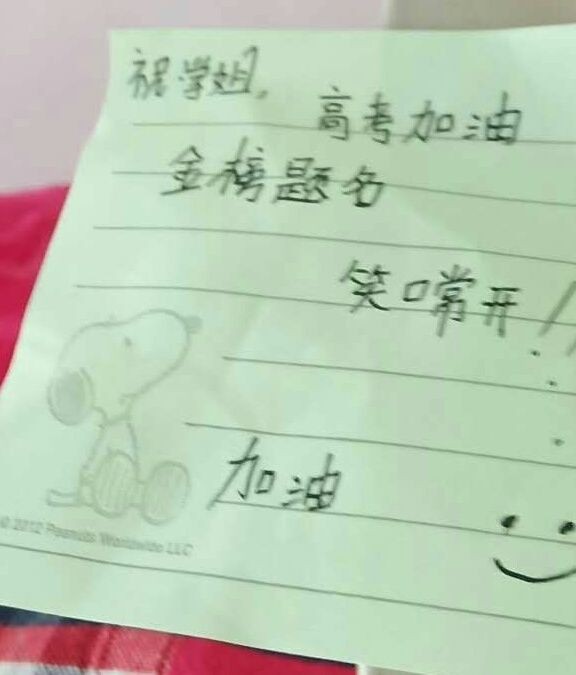 祝学姐,
高考加油
金榜题名
笑口常开!!
加油
© 2012 Peanuts Worldwide LLC